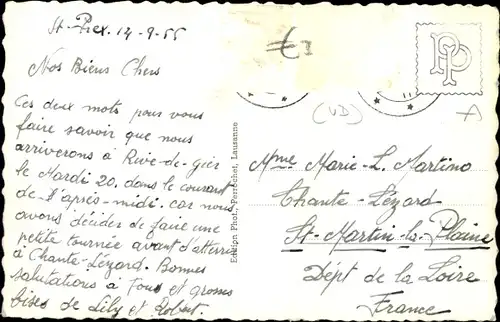 St-Prex. 14-9-55
Nos Biens Chers
Ces deux mots pour vous
faire savoir que nous
arriverons à Rive-de-gier
le Mardi 20. dans le courant
de-l'après-midi. car nous
avons décider de faire une
petite tournée avant d'atterrir
à Chante-Lézard. Bonnes
salutations à Tous et grosses
bises de Lily et Robert.
Edition Phot. Perrochet, Lausanne
(VD)
A
PP
Mme Marie-L. Martino
Chante-Lézard
St-Martin-la-Plaine
Dépt de la Loire
France